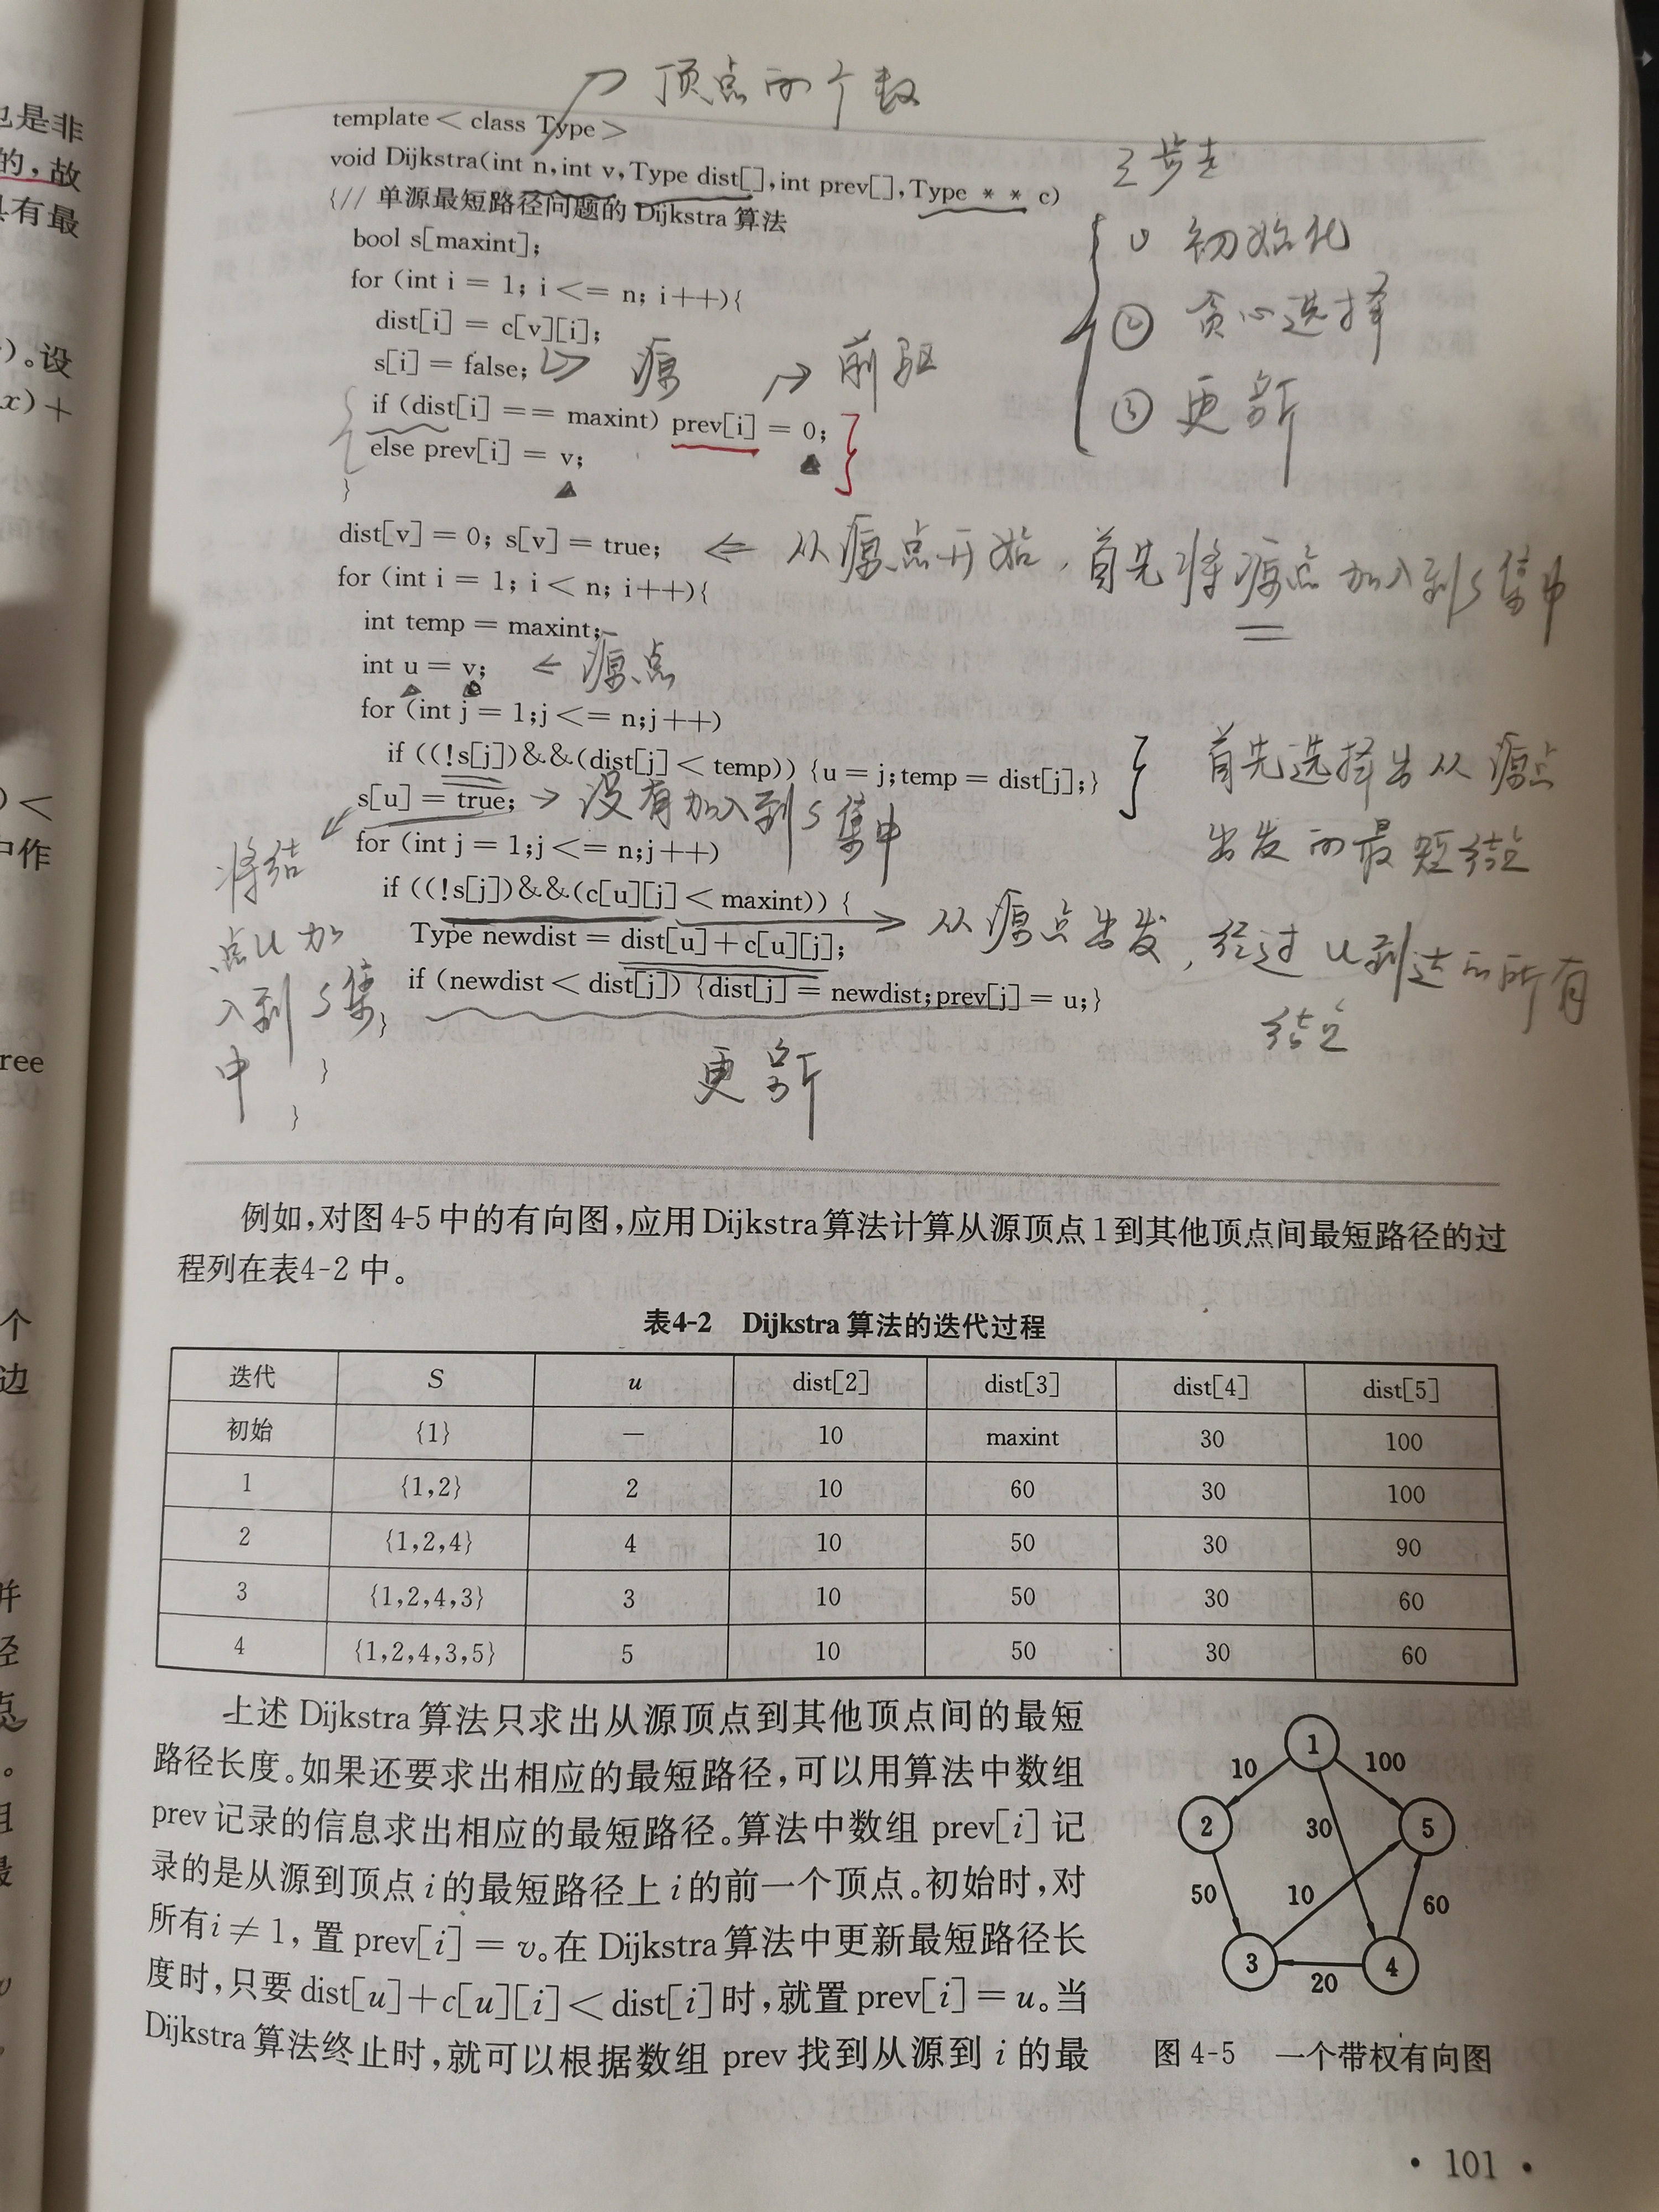 顶点的个数
template < class Type >
void Dijkstra(int n,int v,Type dist[],int prev[],Type * * c)
{// 单源最短路径问题的 Dijkstra 算法
bool s[maxint];
for (int i = 1; i <= n; i++){
dist[i] = c[v][i];
s[i] = false;
源
前驱
if (dist[i] == maxint) prev[i] = 0;
else prev[i] = v;
}
三步走
① 初始化
② 贪心选择
③ 更新
dist[v] = 0; s[v] = true; ⇐ 从源点开始,首先将源点加入到S集中
for (int i = 1; i < n; i++){
int temp = maxint;
int u = v; ← 源点
for (int j = 1;j <= n;j++)
if ((!s[j])&&(dist[j] < temp)) {u = j;temp = dist[j];}
首先选择出从源点
出发的最短结点
s[u] = true; → 没有加入到S集中
将结
点u加
入到S集
中
for (int j = 1;j <= n;j++)
if ((!s[j])&&(c[u][j] < maxint)) {
Type newdist = dist[u]+c[u][j];
从源点出发,经过u到达的所有
结点
if (newdist < dist[j]) {dist[j] = newdist;prev[j] = u;}
}
更新
}
}
例如,对图 4-5 中的有向图,应用 Dijkstra 算法计算从源顶点 1 到其他顶点间最短路径的过
程列在表4-2 中。
表4-2 Dijkstra 算法的迭代过程
迭代 S u dist[2] dist[3] dist[4] dist[5]
初始 {1} — 10 maxint 30 100
1 {1,2} 2 10 60 30 100
2 {1,2,4} 4 10 50 30 90
3 {1,2,4,3} 3 10 50 30 60
4 {1,2,4,3,5} 5 10 50 30 60
上述 Dijkstra 算法只求出从源顶点到其他顶点间的最短
路径长度。如果还要求出相应的最短路径,可以用算法中数组
prev 记录的信息求出相应的最短路径。算法中数组 prev[i] 记
录的是从源到顶点 i 的最短路径上 i 的前一个顶点。初始时,对
所有 i ≠ 1, 置 prev[i] = v。在 Dijkstra 算法中更新最短路径长
度时,只要 dist[u]+c[u][i] < dist[i] 时,就置 prev[i] = u。当
Dijkstra 算法终止时,就可以根据数组 prev 找到从源到 i 的最
1
10
100
2
30
5
50
10
60
3
20
4
图 4-5 一个带权有向图
· 101 ·
也是非
的,故
具有最
)。设
x)+
)<
中作
ree
个
边
并
径
点
。